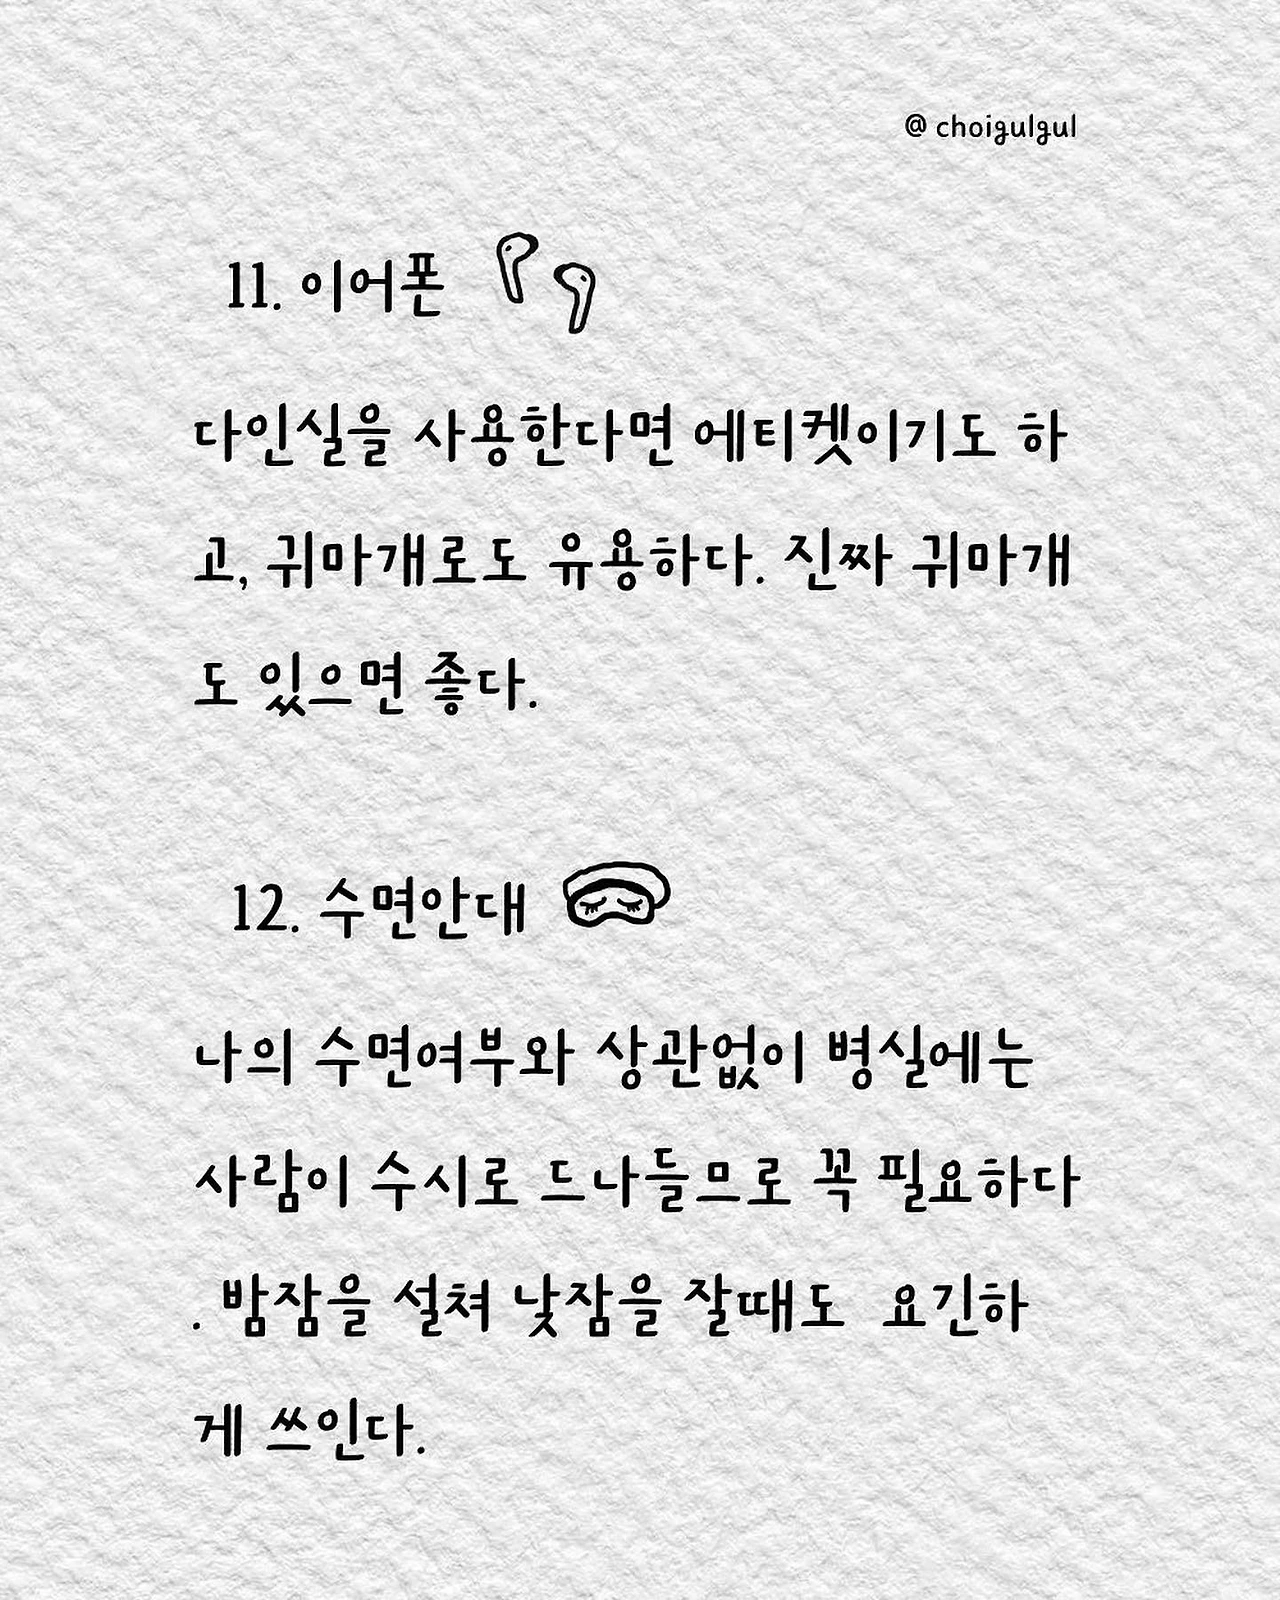 @ choigulgul
11. 이어폰
다인실을 사용한다면 에티켓이기도 하
고, 귀마개로도 유용하다. 진짜 귀마개
도 있으면 좋다.
12. 수면안대
나의 수면여부와 상관없이 병실에는
사람이 수시로 드나들므로 꼭 필요하다
. 밤잠을 설쳐 낮잠을 잘때도  요긴하
게 쓰인다.